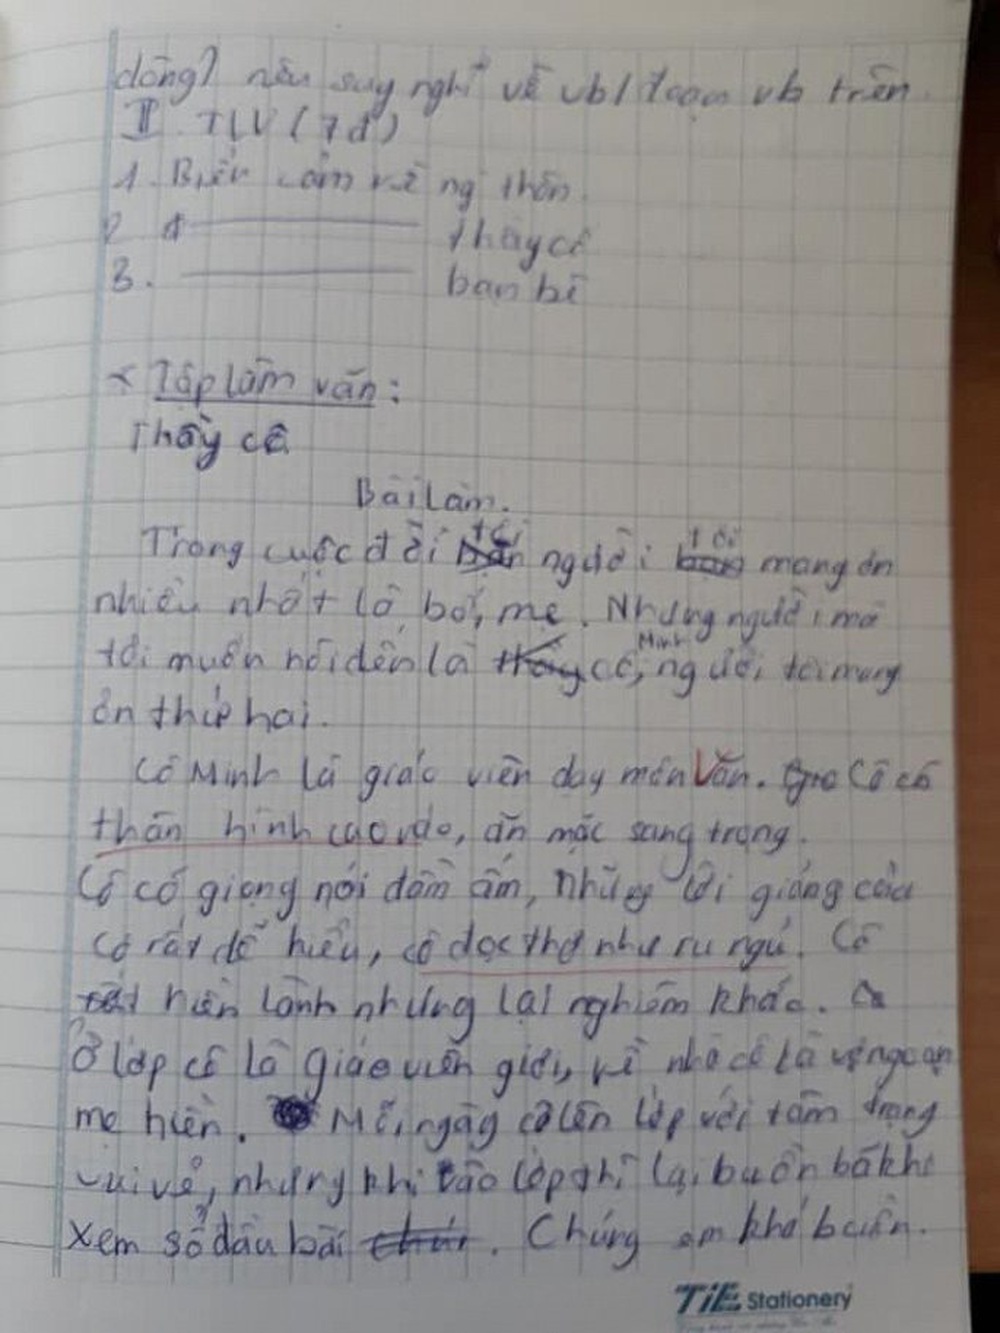 dòng) nêu suy nghĩ về vb/đoạn vb trên.
II. TLV (7đ)
1. Biểu cảm về ng thân.
2. thầy cô
3. bạn bè
Tập làm văn:
Thầy cô
Bài Làm.
Trong cuộc đời tôi người tôi mang ơn
nhiều nhất là bố, mẹ. Nhưng người mà
tôi muốn nói đến là cô Minh, người tôi mang
ơn thứ hai.
Cô Minh là giáo viên dạy môn Văn. Cô có
thân hình cao ráo, ăn mặc sang trọng.
Cô có giọng nói đầm ấm, những lời giảng của
cô rất dễ hiểu, cô đọc thơ như ru ngủ. Cô
rất hiền lành nhưng lại nghiêm khắc.
Ở lớp cô là giáo viên giỏi, về nhà cô là vợ ngoan
mẹ hiền. Mỗi ngày cô lên lớp với tâm trạng
vui vẻ, nhưng khi vào lớp thì lại buồn bã khi
xem sổ đầu bài. Chúng em khá buồn.
TiE Stationery